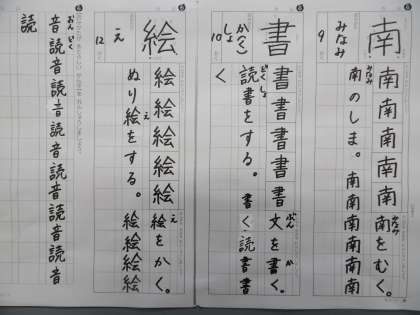 南
みなみ
9
南南南南南 南をむく。
みなみ
南のしま。 南南南南南
みなみ
書
かく
しょ
10
書書書書書 文を書く。
ぶん か
読書をする。 書く 読書書
どくしょ
く
絵
え
12
絵絵絵絵絵 絵をかく。
え
ぬり絵をする。 絵絵絵絵
え
音読音読音読音読音読音読音
おん どく
読